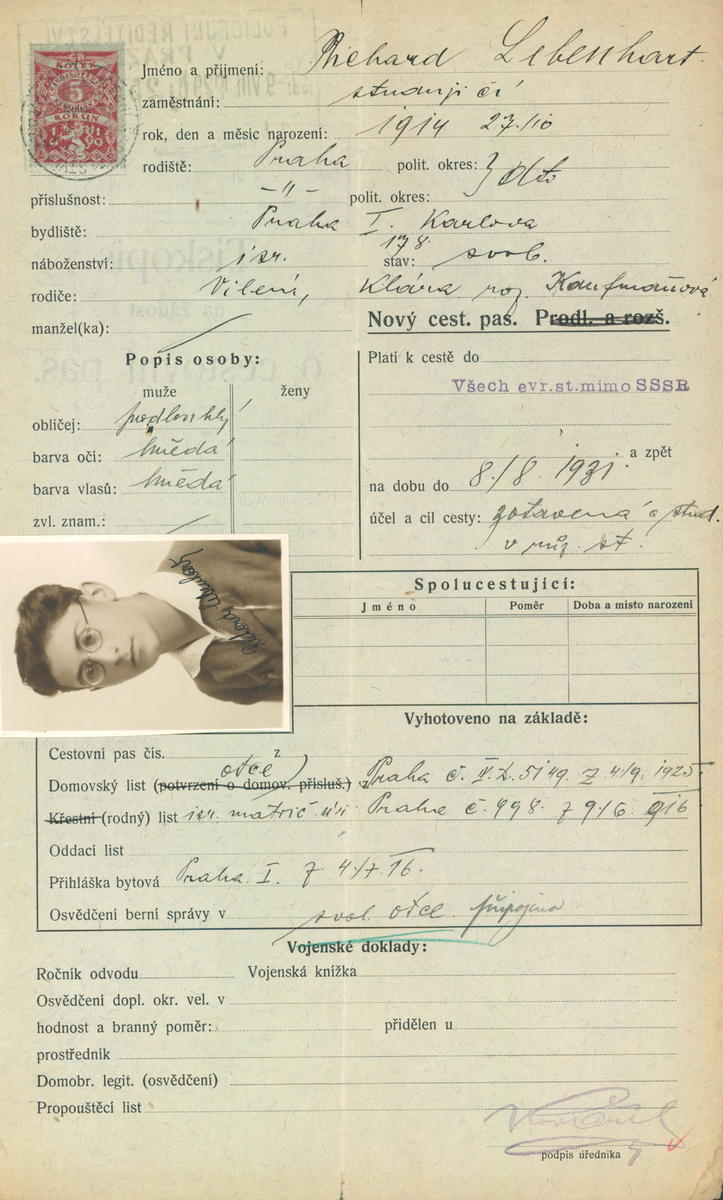 KOLEK
5
KORUN
Jméno a příjmení: Richard Lebenhart.
zaměstnání: studující
rok, den a měsíc narození: 1914 27./10
rodiště: Praha polit. okres: } dto
příslušnost: -"- polit. okres:
bydliště: Praha I. Karlova 178.
náboženství: isr. stav: svob.
rodiče: Vilém, Klára roz. Kaufmanová
manžel(ka):
Nový cest. pas. Prodl. a rozš.
Popis osoby:
muže ženy
obličej: podlouhlý
barva očí: hnědá
barva vlasů: hnědá
zvl. znam.:
Platí k cestě do
Všech evr.st.mimo SSSR
a zpět
na dobu do 8./8. 1931.
účel a cíl cesty: zotavená a stud.
v růz. st.
Spolucestující:
Jméno Poměr Doba a místo narození
Vyhotoveno na základě:
Cestovní pas čís. z
otce
Domovský list (potvrzení o domov. přísluš.) z Praha č. IV.D. 5149. z 4/9. 1925
Křestní (rodný) list isr. matrič. úř. Praha č. 998. z 9/6. 916
Oddací list
Přihláška bytová Praha I. z 4./7. 16.
Osvědčení berní správy v svol. otce připojeno
Vojenské doklady:
Ročník odvodu Vojenská knížka
Osvědčení dopl. okr. vel. v
hodnost a branný poměr: přidělen u
prostředník
Domobr. legit. (osvědčení)
Propouštěcí list
podpis úředníka